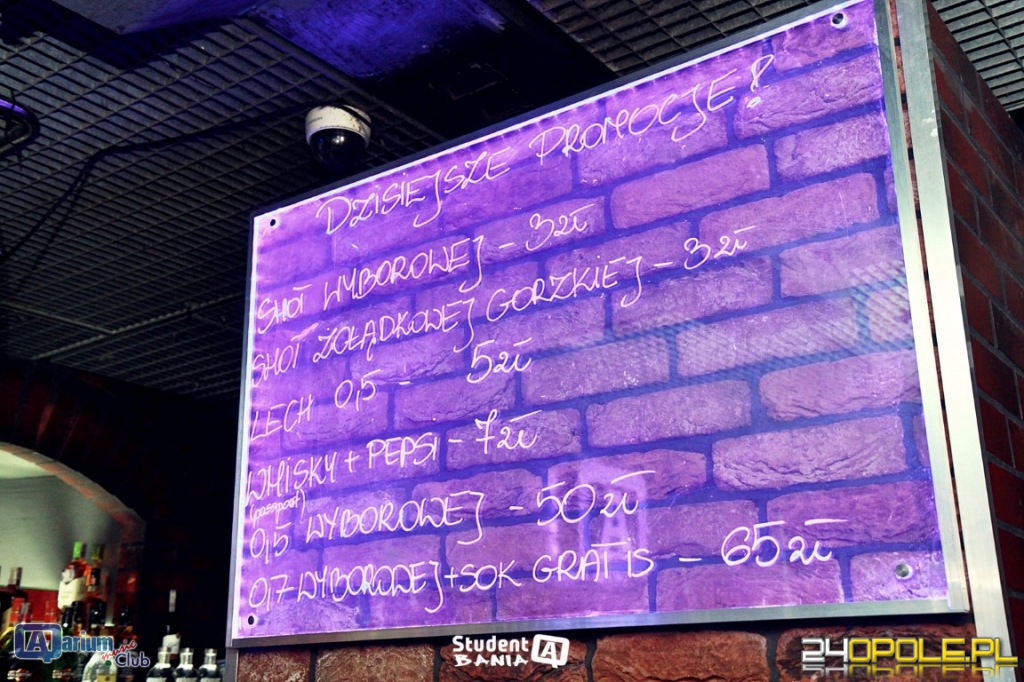 DZISIEJSZE PROMOCJE!
SHOT WYBOROWEJ - 3zł
SHOT ŻOŁĄDKOWEJ GORZKIEJ - 3zł
LECH 0,5 - 5zł
WHISKY + PEPSI - 7zł
(passport)
0,5 WYBOROWEJ - 50zł
0,7 WYBORODEJ + SOK GRATIS - 65zł
Aqarium
music
Club
Student
BANIA
24OPOLE.PL